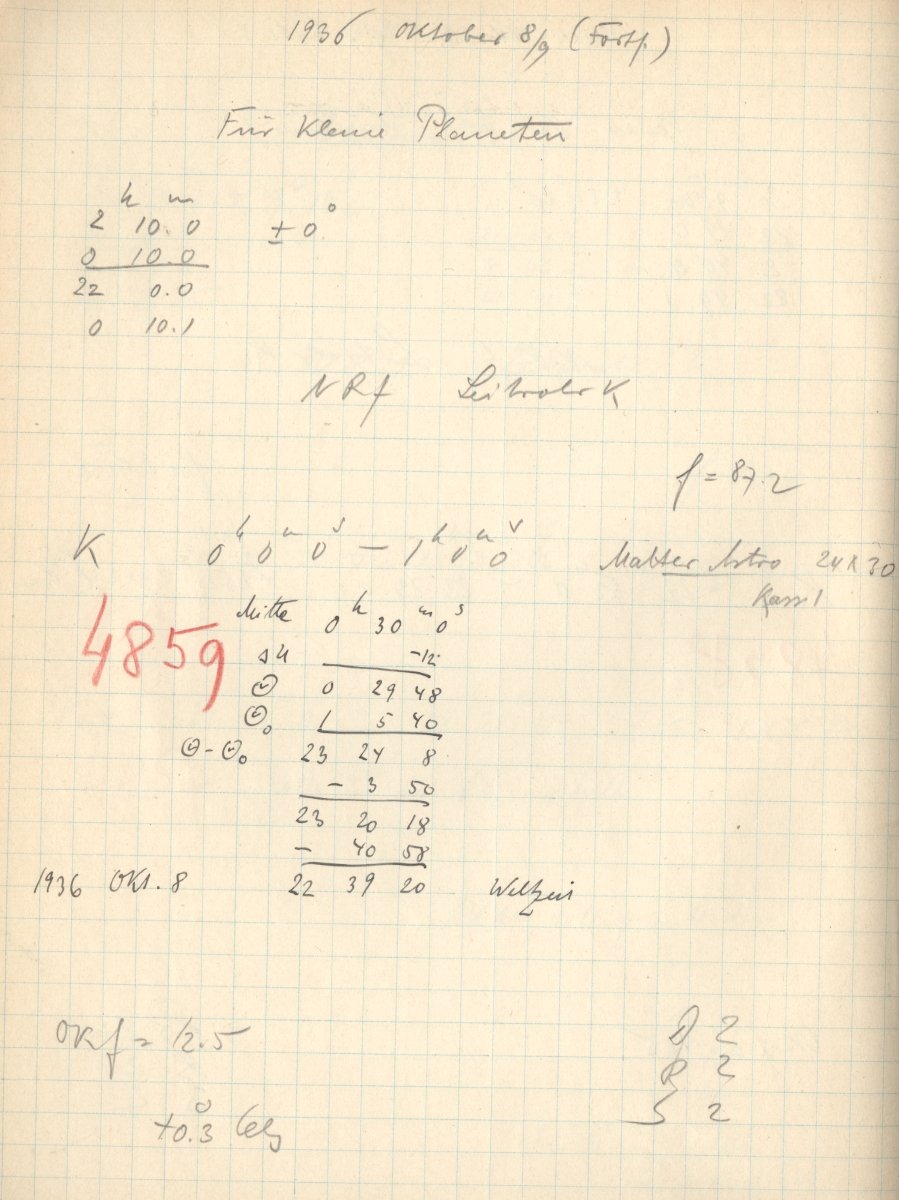 1936 Oktober 8/9 (Forts.)
Für Kleine Planeten
h m
2 10.0 ± 0°
0 10.0
22 0.0
0 10.1
NRf Leitrohr K
f = 87.2
K 0h 0m 0s — 1h 0m 0s
Matter Astro 24 x 30
Kass 1
4859
Mitte 0h 30m 0s
-12
⊙ 0 29 48
⊙₀ 1 5 40
⊙ - ⊙₀ 23 24 8
- 3 50
23 20 18
- 40 58
1936 Okt. 8 22 39 20 Weltzeit
OKf = 12.5
+0.3° Cels
D 2
R 2
S 2